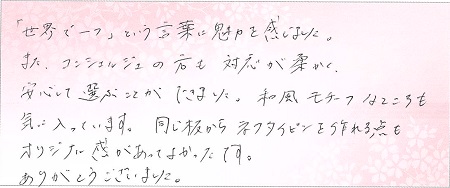 「世界で一つ」という言葉に魅力を感じました。
また、コンシェルジュの方も対応が柔かく、
安心して選ぶことができました。和風モチーフなところも
気に入っています。同じ板からネクタイピンを作れる点も
オリジナル感があってよかったです。
ありがとうございました。